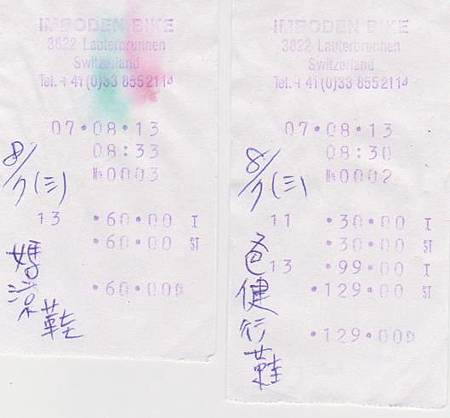 IMBODEN BIKE
3822 Lauterbrunnen
Switzerland
Tel. +41(0)33 8552114
07·08·13
08:33
№0003
8/7(三)
13 ·60·00 I
·60·00 ST
·60·00
媽涼鞋
IMBODEN BIKE
3822 Lauterbrunnen
Switzerland
Tel. +41(0)33 8552114
07·08·13
08:30
№0002
8/7(三)
11 ·30·00 I
·30·00 ST
13 ·99·00 I
·129·00 ST
·129·00
爸健行鞋